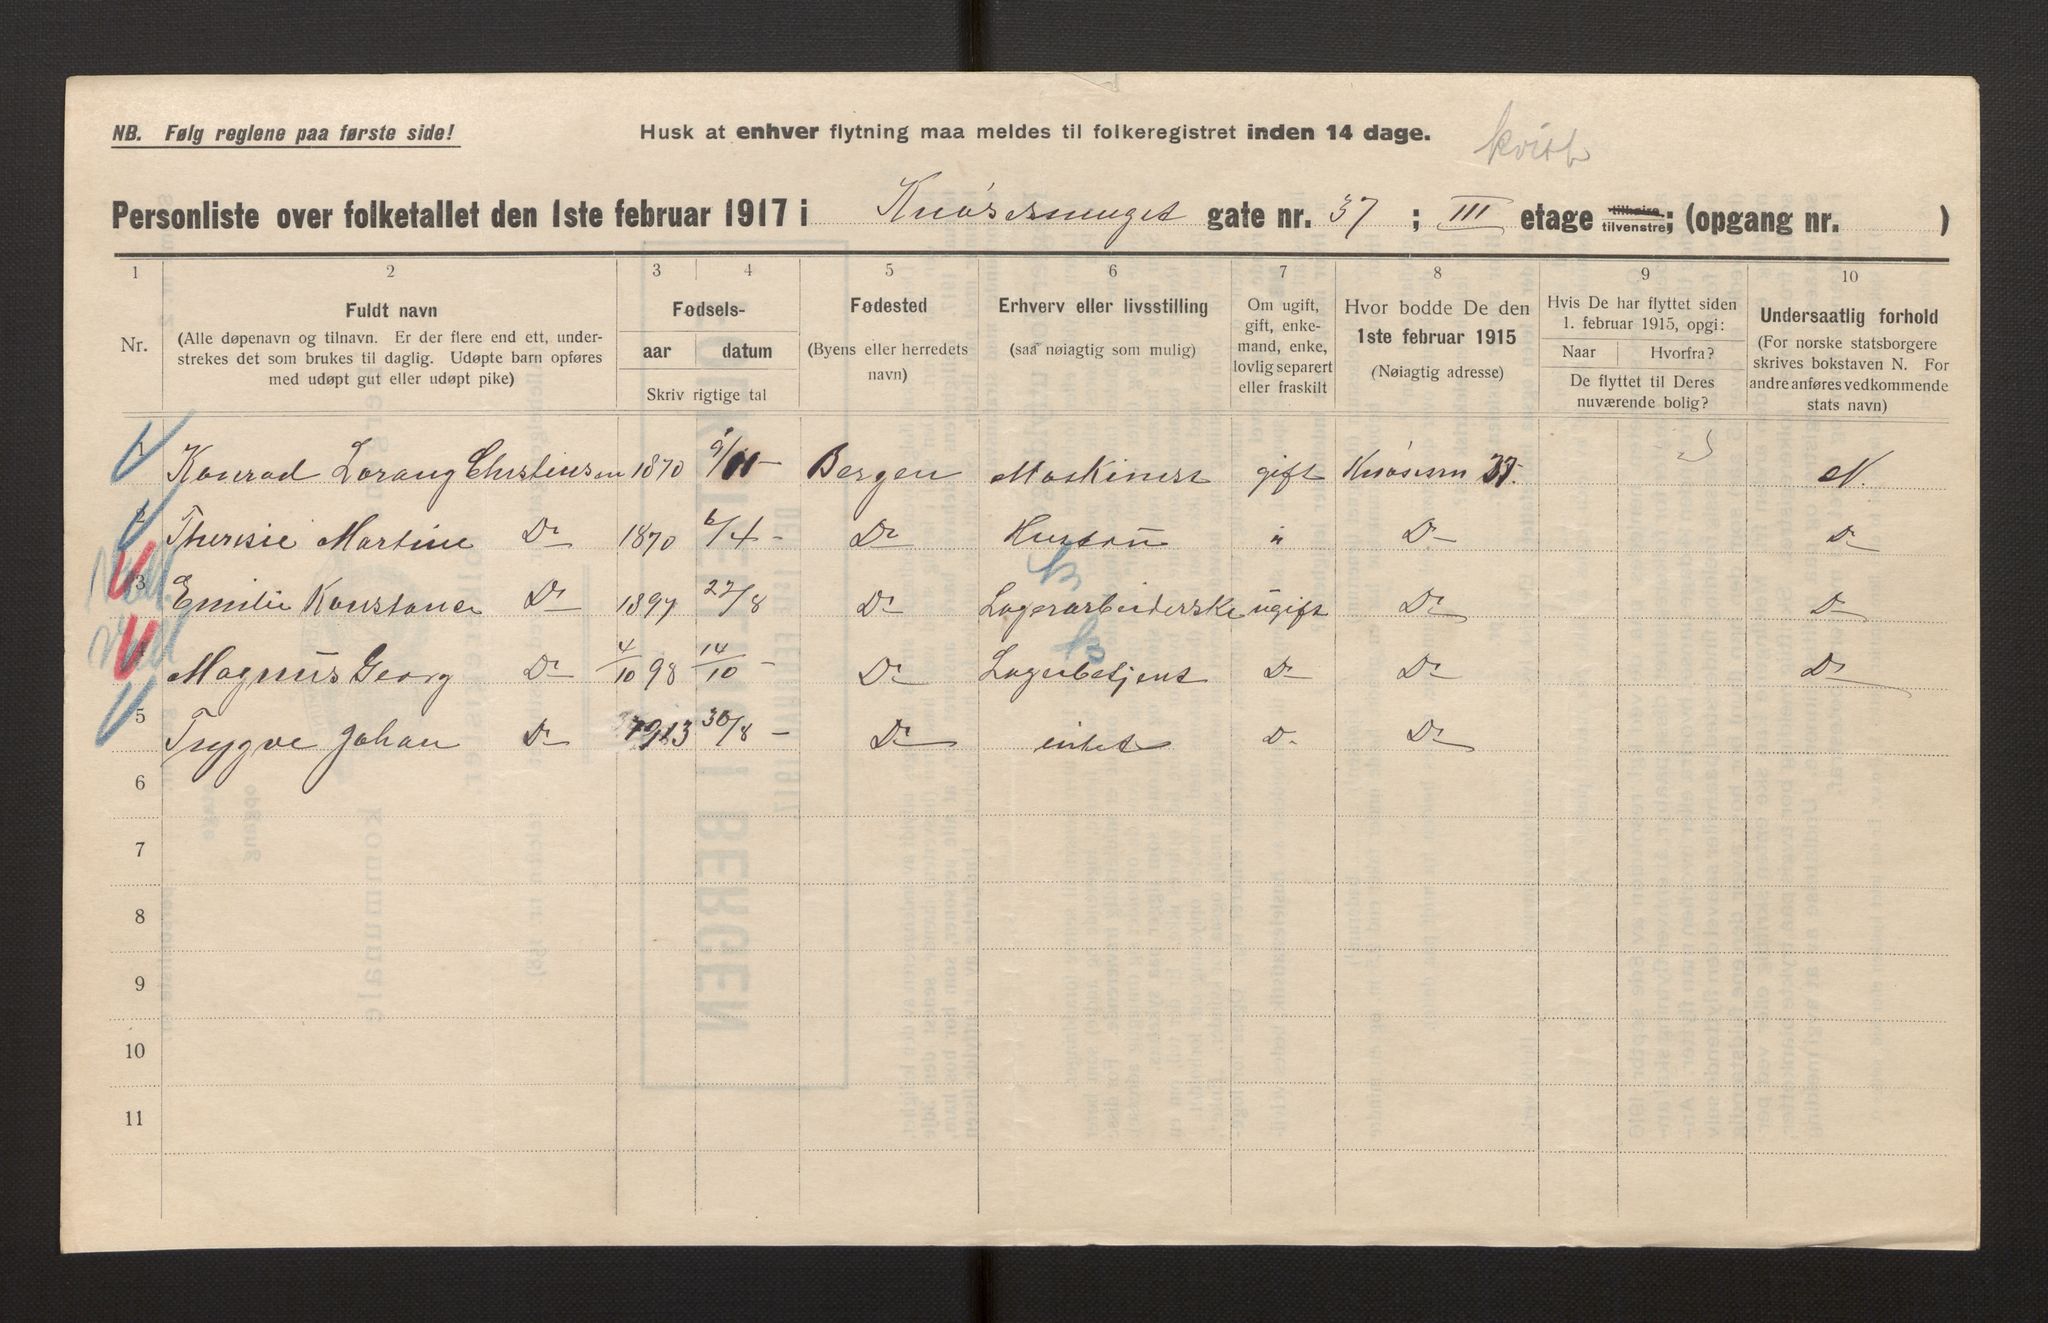 NB. Følg reglene paa første side!
Husk at enhver flytning maa meldes til folkeregistret inden 14 dage.
kvist
Personliste over folketallet den 1ste februar 1917 i Knøsesmuget gate nr. 37 ; III etage tilhøire tilvenstre; (opgang nr. )
1 2 3 4 5 6 7 8 9 10
Nr.
Fuldt navn
(Alle døpenavn og tilnavn. Er der flere end ett, under-
strekes det som brukes til daglig. Udøpte barn opføres
med udøpt gut eller udøpt pike)
Fødsels-
aar datum
Skriv rigtige tal
Fødested
(Byens eller herredets
navn)
Erhverv eller livsstilling
(saa nøiagtig som mulig)
Om ugift,
gift, enke-
mand, enke,
lovlig separert
eller fraskilt
Hvor bodde De den
1ste februar 1915
(Nøiagtig adresse)
Hvis De har flyttet siden
1. februar 1915, opgi:
Naar Hvorfra?
De flyttet til Deres
nuværende bolig?
Undersaatlig forhold
(For norske statsborgere
skrives bokstaven N. For
andre anføres vedkommende
stats navn)
1 Konrad Lorang Christiansen 1870 9/11 - Bergen Maskinist gift Knøsesm 37. N.
2 Theresie Martine Do 1870 6/4 - Do Hustru " Do Do
3 Emilie Konstanse Do 1897 27/8 Do Lagerarbeiderske ugift Do Do
4 Magnus Georg Do 4/10 98 14/10 - Do Lagerbetjent Do Do Do
5 Trygve Johan Do 1913 30/8 - Do intet Do Do
6
7
8
9
10
11